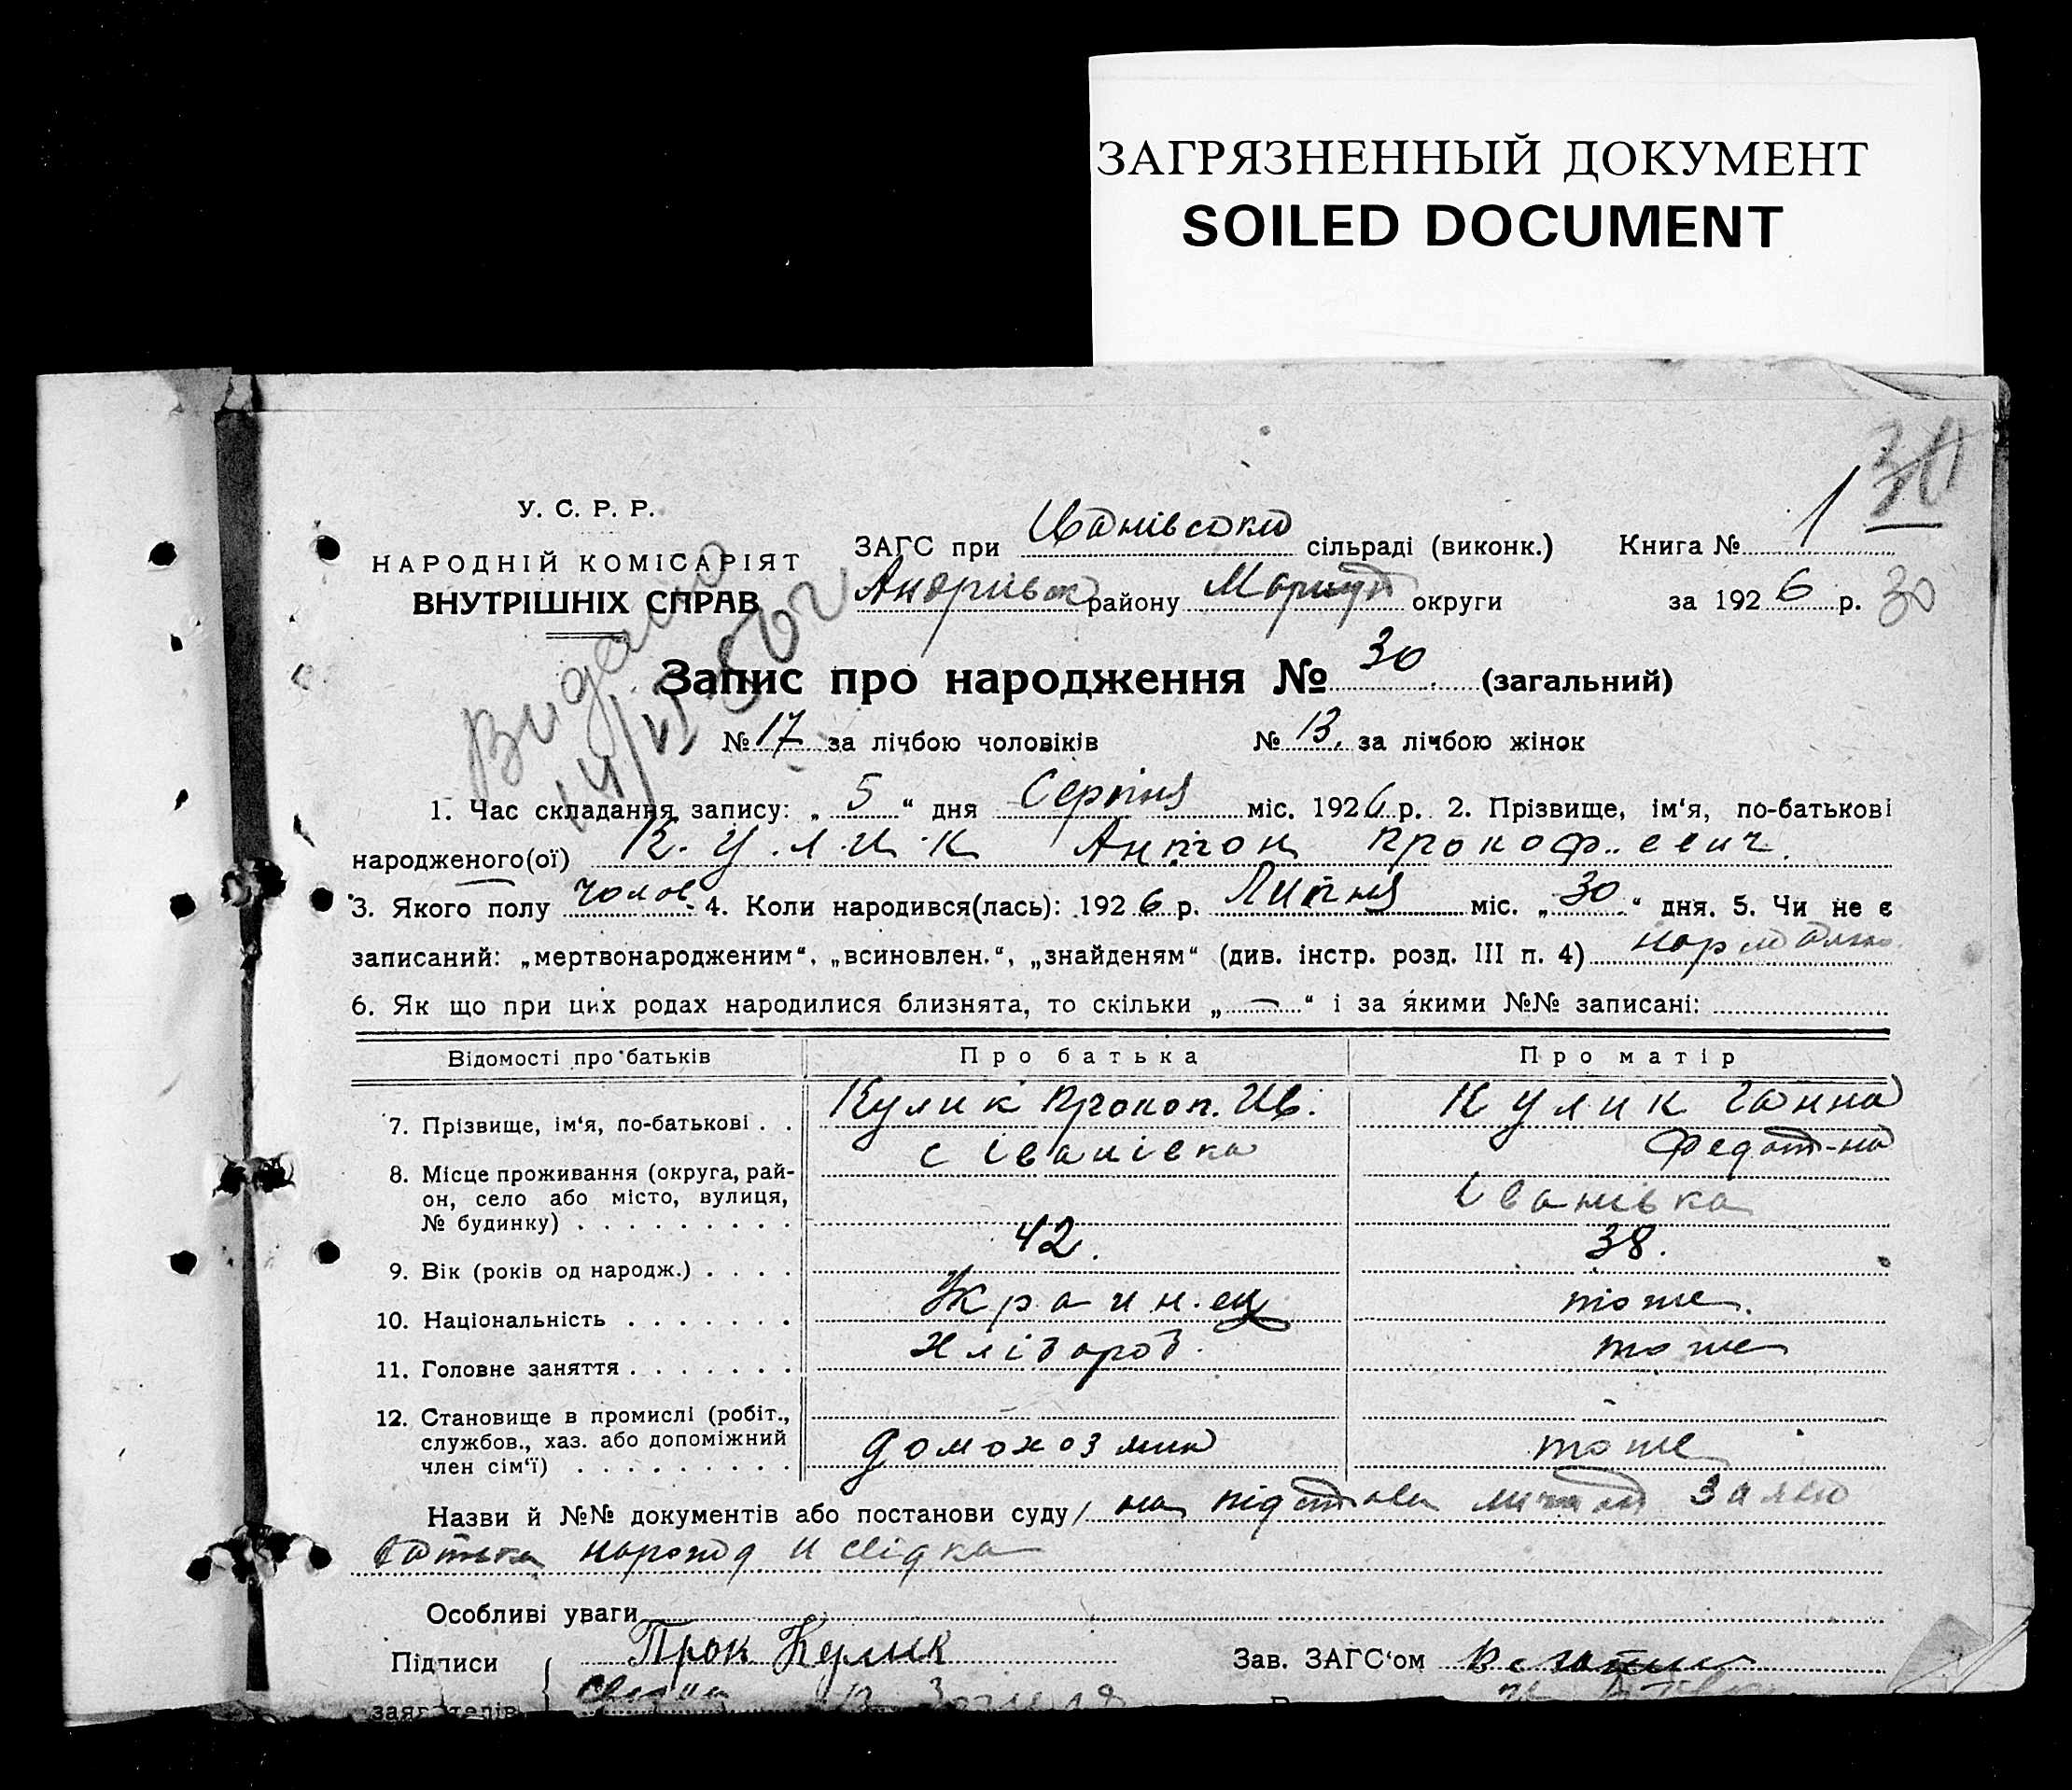 ЗАГРЯЗНЕННЫЙ ДОКУМЕНТ
SOILED DOCUMENT
30
У. С. Р. Р.
НАРОДНІЙ КОМІСАРІЯТ
ВНУТРІШНІХ СПРАВ
Видано
ЗАГС при Іванівською сільраді (виконк.) Книга № 1
Андриівск району Маріуп округи за 1926 р. 30
Запис про народження № 30 (загальний)
№ 17 за лічбою чоловіків № 13. за лічбою жінок
1. Час складання запису: „ 5 “ дня Серпня міс. 1926 р. 2. Прізвище, ім‘я, по-батькові
народженого(ої) Кулик Антон Прокоф..евич.
3. Якого полу чолов. 4. Коли народився(лась): 1926 р. Липня міс. „ 30 “ дня. 5. Чи не є
записаний: „мертвонародженим“, „всиновлен.“, „знайденям“ (див. інстр. розд. III п. 4) нормально
6. Як що при цих родах народилися близнята, то скільки „ — “ і за якими №№ записані:
Відомості про батьків Про батька Про матір
7. Прізвище, ім‘я, по-батькові . . Кулик Прокоп. Ив. Кулик Ганна
Федот-на
8. Місце проживання (округа, рай-
он, село або місто, вулиця,
№ будинку) . . . . . . . . . с Іванівка Іванівка
9. Вік (років од народж.) . . . . 42. 38.
10. Національність . . . . . . . Украин.ец тоже.
11. Головне заняття . . . . . . . Хлібороб. тоже
12. Становище в промислі (робіт.,
службов., хаз. або допоміжний
член сім‘ї) . . . . . . . . . домохозяин тоже
Назви й №№ документів або постанови суду/ на підставі
батька народ и свідка
Особливі уваги
Підписи Прок Кулик Зав. ЗАГС‘ом
заявителів